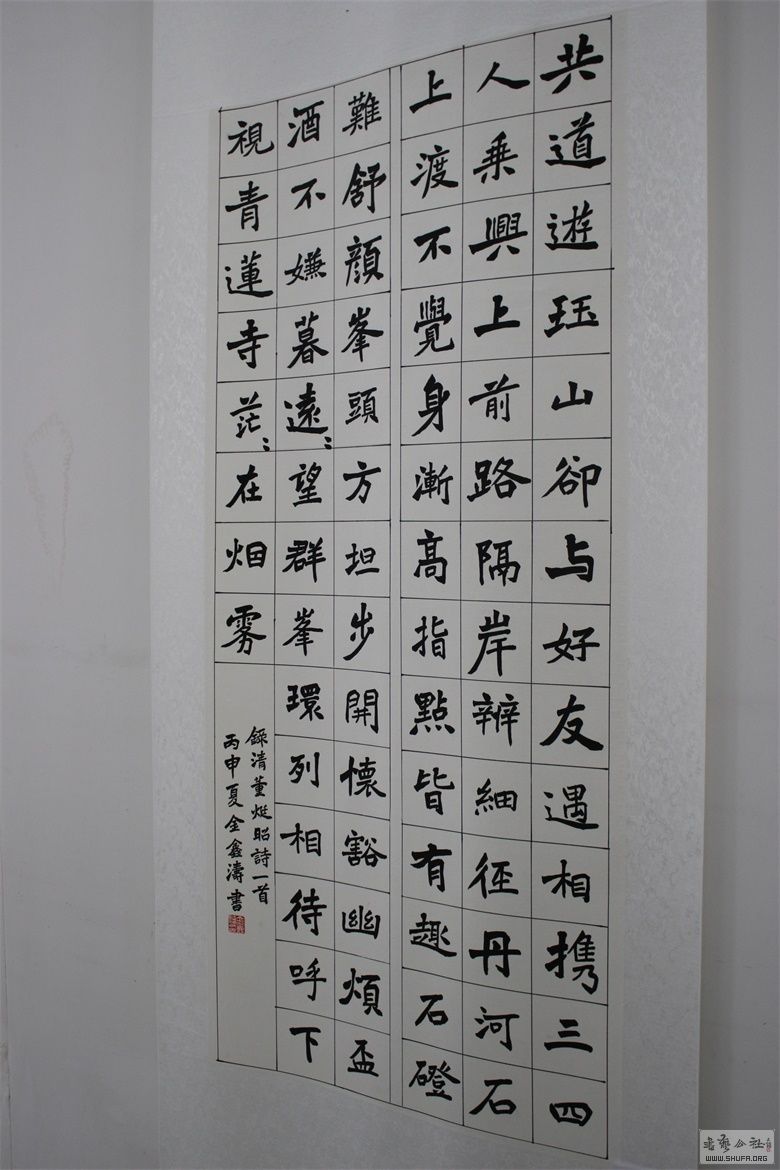 共道遊珏山卻与好友遇相携三四
人乘興上前路隔岸辨細径丹河石
上渡不覺身漸高指點皆有趣石磴
難舒顔峯頭方坦步開懷豁幽煩盃
酒不嫌暮遠〻望群峯環列相待呼下
視青蓮寺茫〻在烟雾
錄清董烶昭詩一首
丙申夏全鑫濤書
WWW.SHUFA.ORG